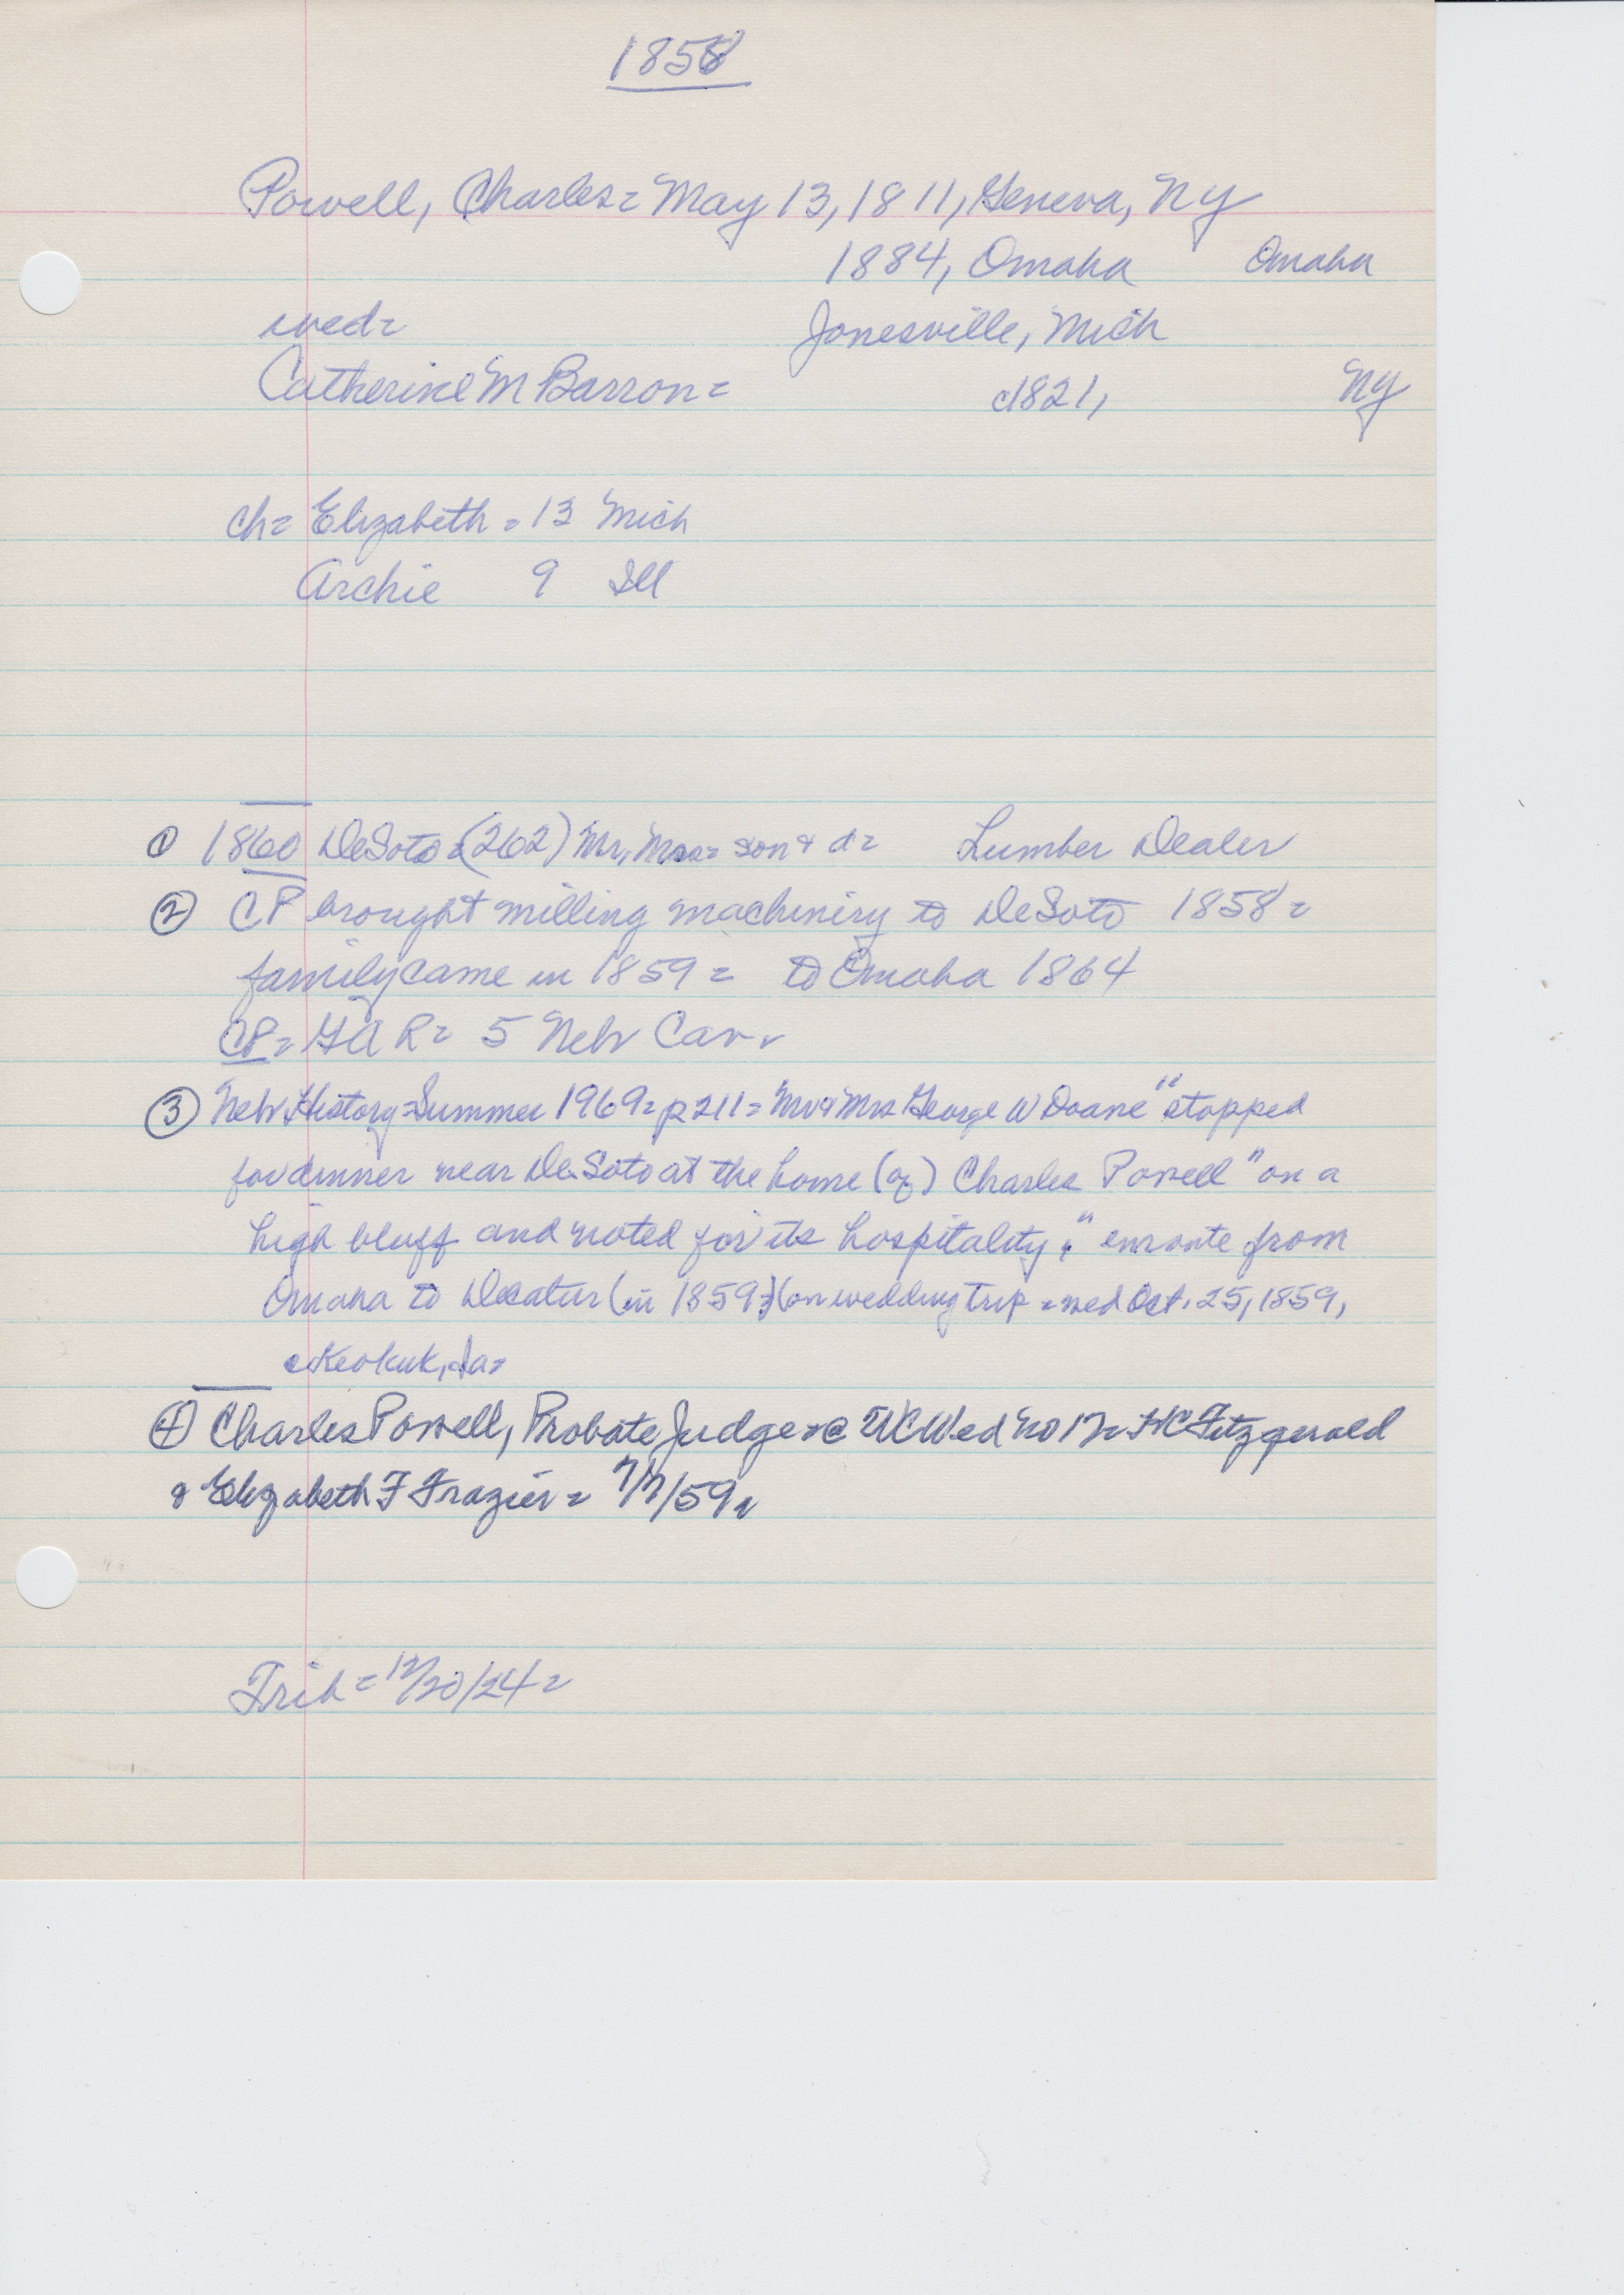 1858
Powell, Charles = May 13, 1811, Geneva, NY
1884, Omaha Omaha
wed = Jonesville, Mich
Catherine M Barron = c1821, NY
ch = Elizabeth = 13 Mich
Archie 9 Ill
① 1860 DeSoto = (262) Mr, Mrs = son + d = Lumber Dealer
② CP brought milling machinery to DeSoto 1858 =
family came in 1859 = to Omaha 1864
CP = GAR = 5 Nebr Cav.
③ Nebr History = Summer 1969 = p211 = Mr & Mrs George W Doane "stopped
for dinner near DeSoto at the home (of) Charles Powell "on a
high bluff and noted for its hospitality," enroute from
Omaha to Decatur (in 1859) (on wedding trip = wed Oct. 25, 1859,
Keokuk, Ia =
④ Charles Powell, Probate Judge = @ WC Wed No 17 = HC Fitzgerald
& Elizabeth F Frazier = 7/7/59 =
Trib = 12/20/24 =